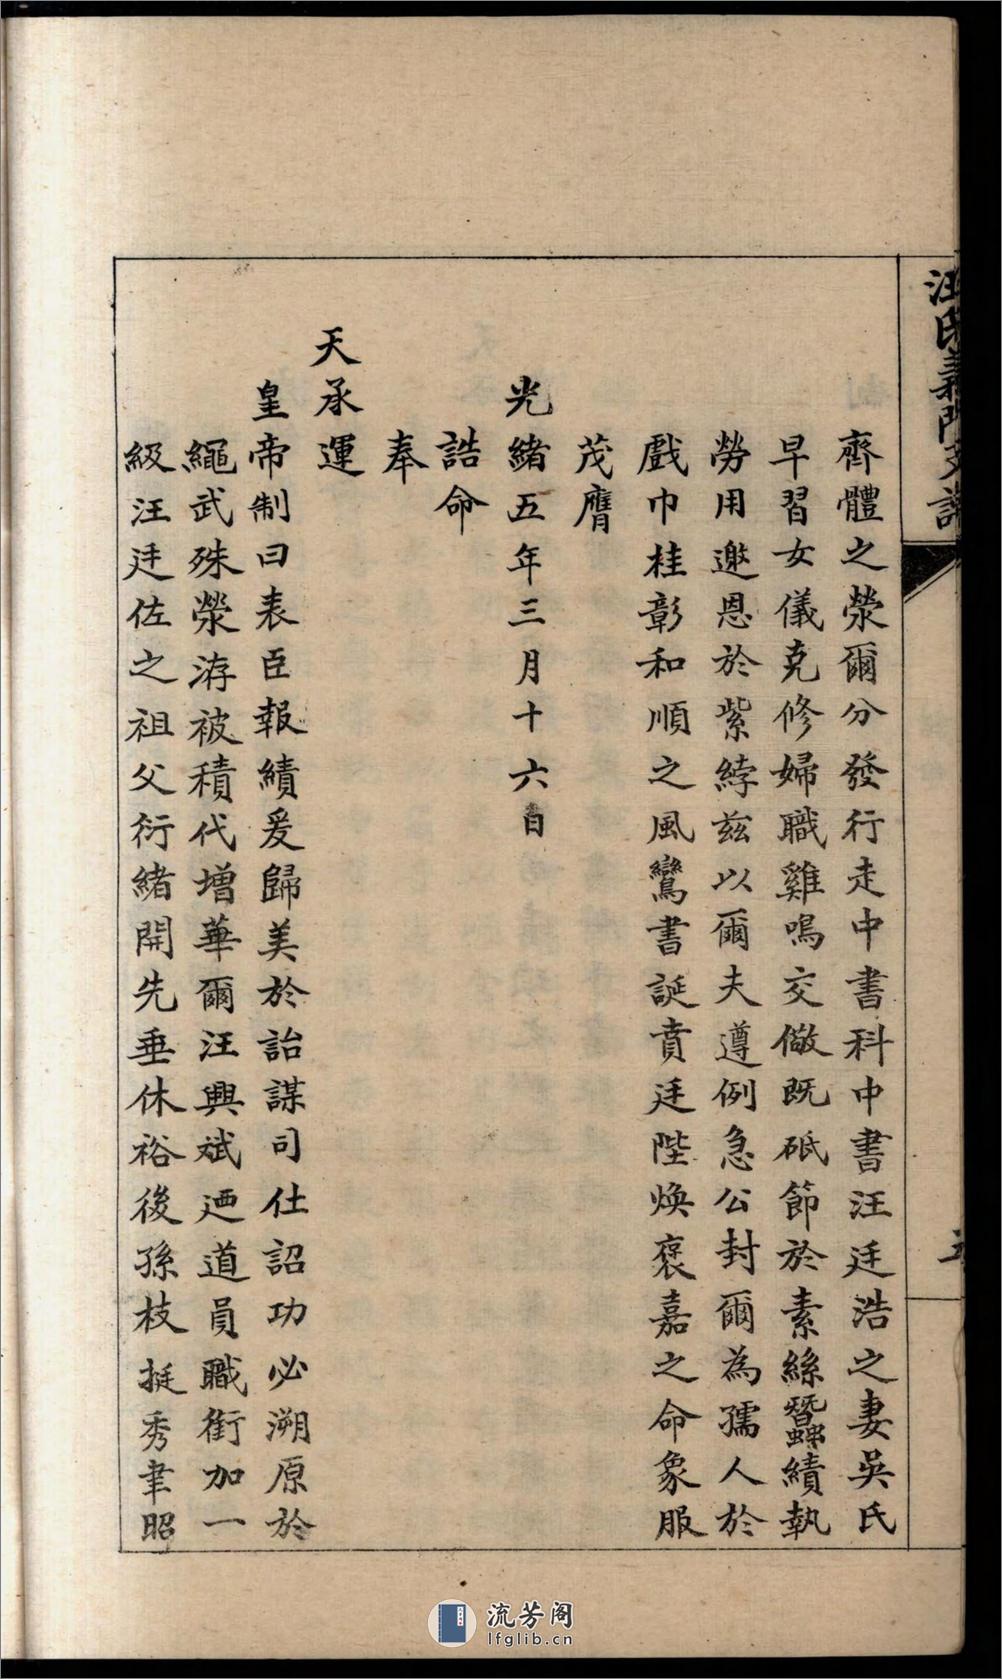 汪氏義門支譜
齊體之榮爾分發行走中書科中書汪廷浩之妻吳氏
早習女儀克修婦職雞鳴交儆既砥節於素絲蠶績執
勞用邀恩於紫綍茲以爾夫遵例急公封爾為孺人於
戲巾桂彰和順之風鸞書誕賁廷陛煥褒嘉之命象服
茂膺
光緒五年三月十六日
誥命
奉
天承運
皇帝制曰表臣報績爰歸美於詒謀司仕詔功必溯原於
繩武殊榮洊被積代增華爾汪興斌迺道員職銜加一
級汪廷佐之祖父衍緒開先垂休裕後孫枝挺秀聿昭
流芳阁
lfglib.cn